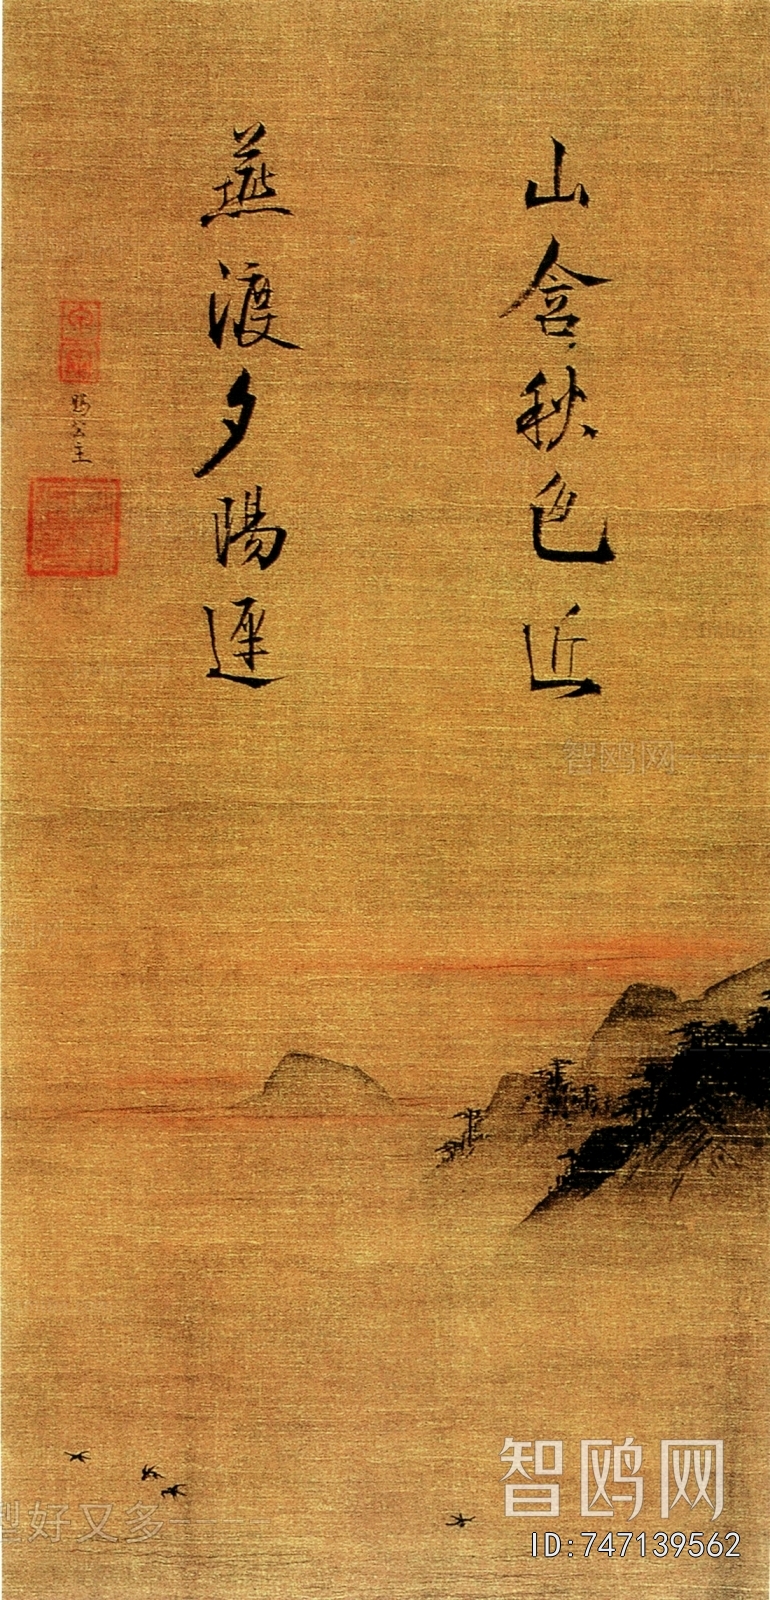 山含秋色近
燕渡夕陽遲
賜公主
智鸥网
好又多
智鸥网
ID:747139562